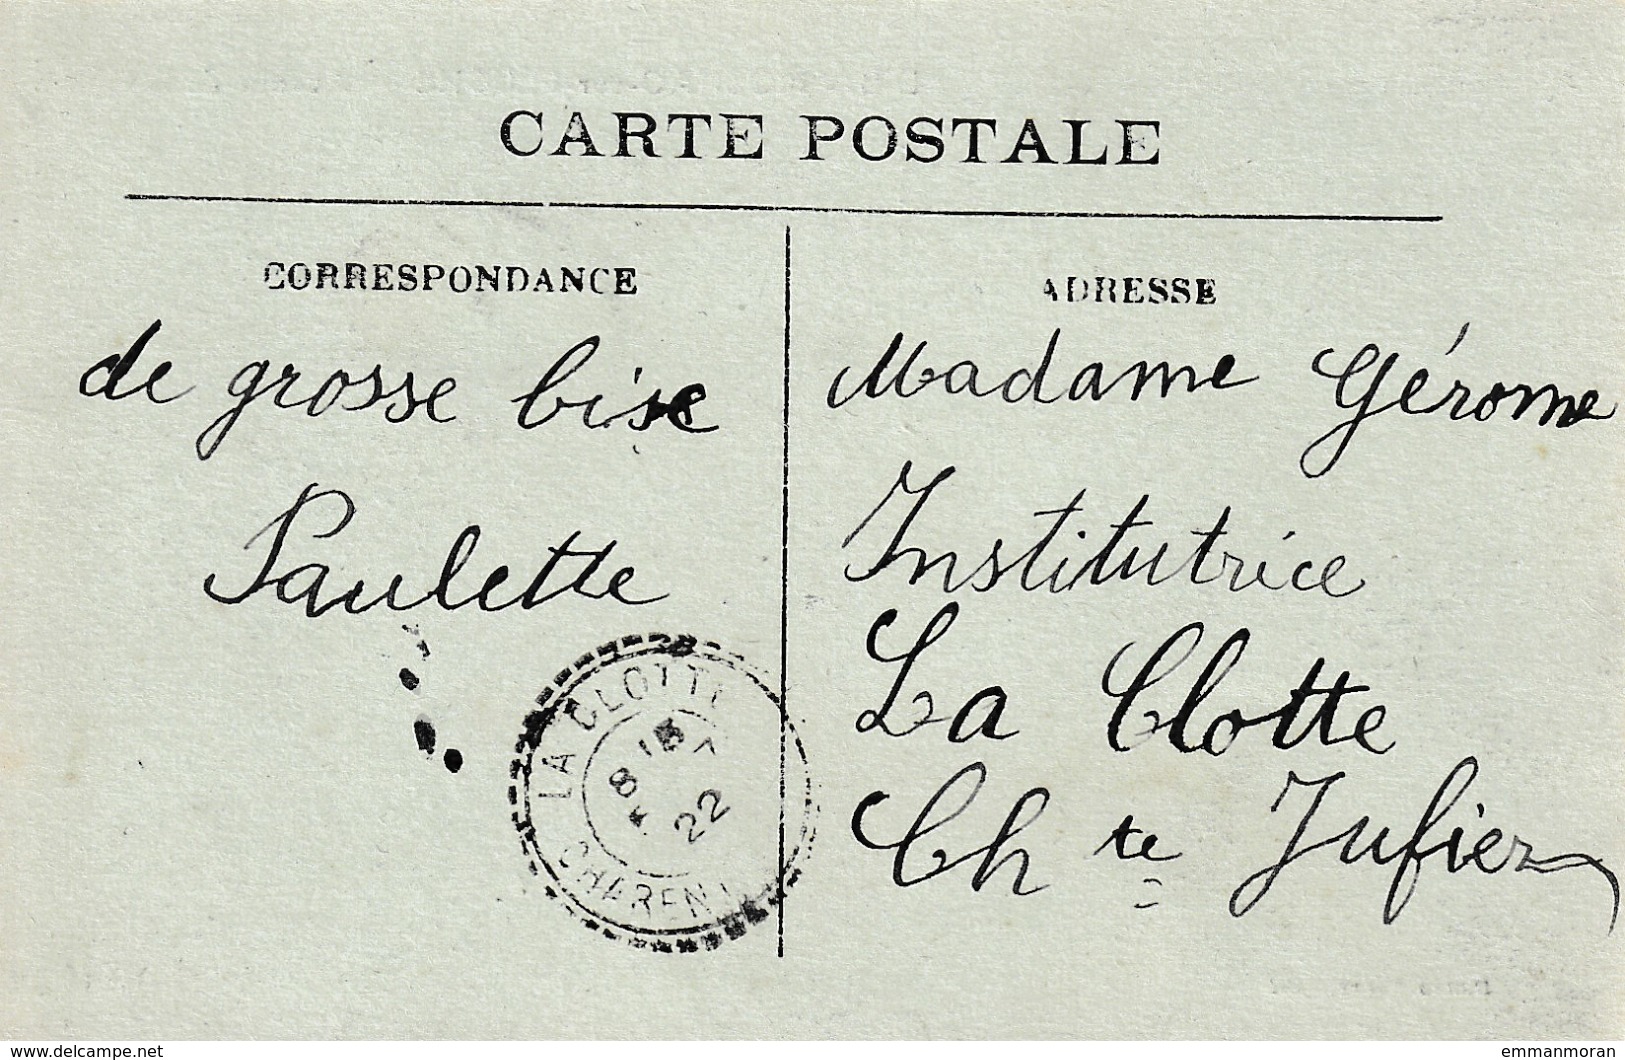 CARTE POSTALE
CORRESPONDANCE
de grosse bise
Paulette
ADRESSE
Madame Gérome
Institutrice
La Clotte
Ch te Jufier
LA CLOTTE
8 15
22
CHARENT
www.delcampe.net
emmanmoran